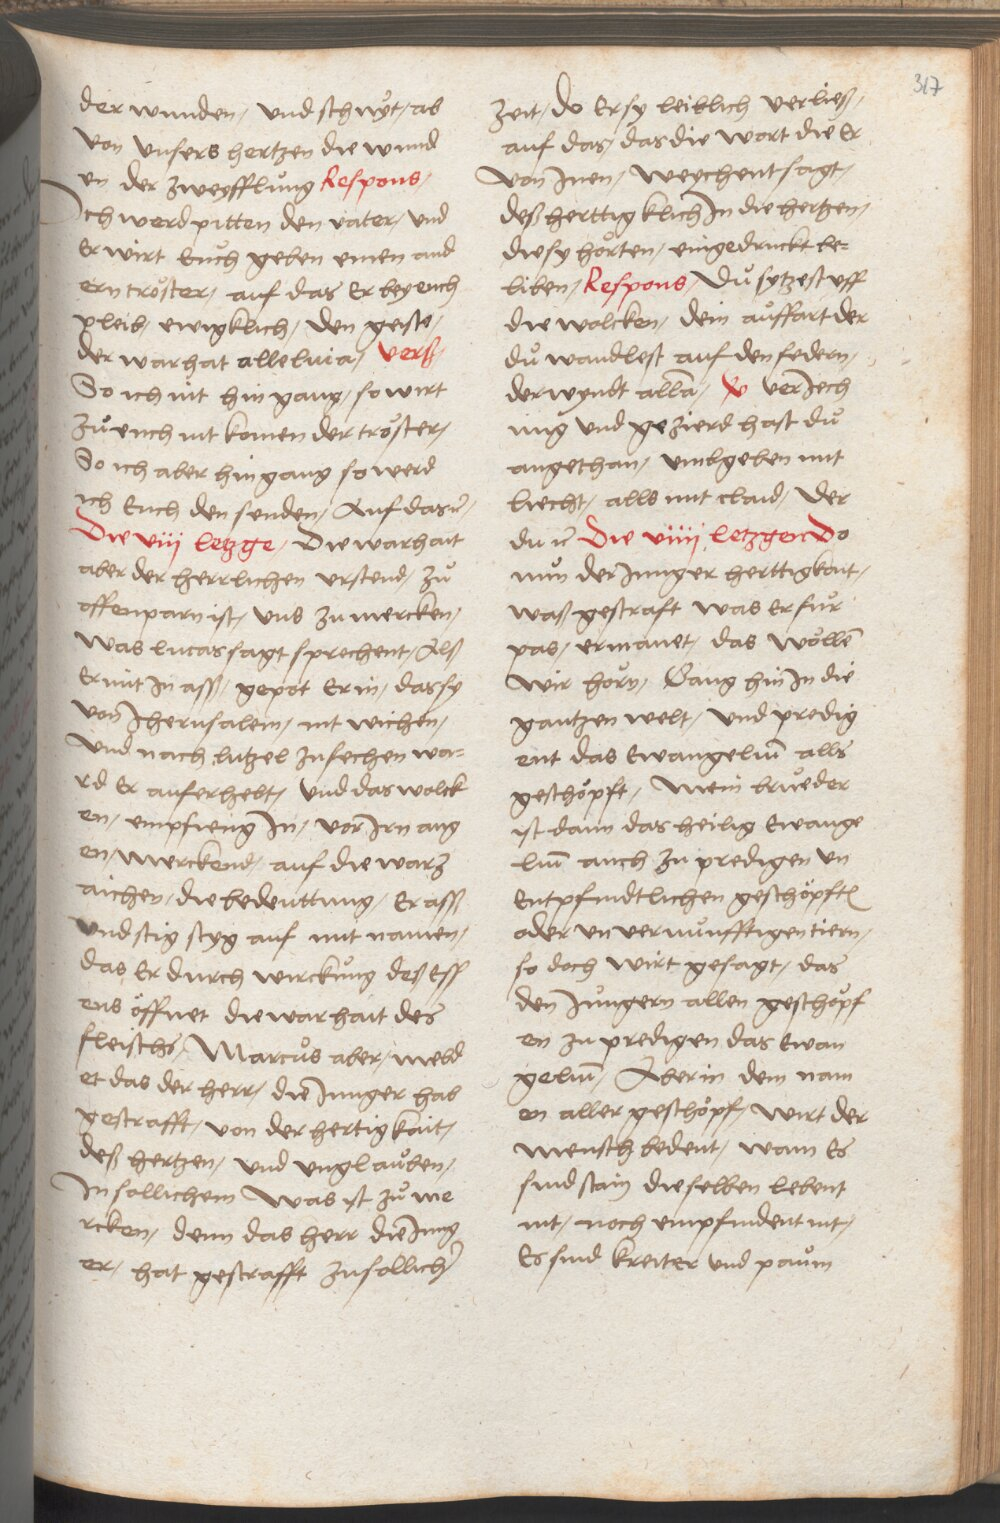 317
der wunden / und schwÿt / ab
von unsers hertzen die wund
en der zweyfflŭng Respons /
Ich werd pitten den vater / und
Er wirt Euch geben einen and
ern trŏster / auf das Er bey euch
pleib / ewigklich / den geiste /
der warhat alleluia / verß /
So ich nit hin gang / so wirt
zŭ euch nit komen der trŏster /
So ich aber hin gang so werd
ich Euch den senden / Auf das
Die viij letzge / Die warhait
aber der herrlichen urstend / zŭ
offenparn ist / uns zu mercken /
was lucas sagt sprechent / Alß
Er mit In asß / gepot Er in / das sy
von Jherusalem / nit wichen /
und nach lutzel zusechen wa=
rd Er auf erhebt / und das wolck
en / empfieng In / vor Irn aug
en / Merckend / auf die warz
aichen / die bedeuttung / Er asß
und stig styg auf mit namen /
das Er durch wirckŭng deß Ess
ens öffnet die warhait des
fleischs / Marcŭs aber / meld
et das der herr / die Junger hab
gestrafft / von der hertigkait /
deß hertzen / und unglaŭben /
In sollichem was ist zŭ me
rcken / denn das herr die Jung
er / hat gestrafft zu sollicher
zeit / do Er sy leiblich verließ /
auf das / das die wort die Er
von Inen / weychent sagt /
deß herttigklich In die hertzen /
die sy hŏrten / eingedruckt be=
liben / Respons / Dŭ sytzest uff
die wolcken / dein aŭffart der
dŭ wandlest auf den federn /
der wyndt alla / verJech
ung und gezierd hast dŭ
angethan / umbgeben mit
liecht / alls mit claid / der
du Die viiij letzgen Do
nŭn der Junger herttigkait /
waß gestraft was er fŭr
pas / ermanet / das wŏllen
wir hŏrn / Gang hin In die
gantzen welt / und predig
ent das Ewangelium alls
geschŏpft / Mein brueder
ist dann das heilig Ewange
lium auch zu predigen un
Entpfindtlichen geschŏpften
oder unvernŭnfftigen tiern /
so doch wirt gesagt / das
den Jŭngern allen geschŏpf
en zu predigen das Ewan
gelium / Aber in dem nam
en aller geschŏpf / wirt der
mensch bedeut / wann Es
sind stain dieselben lebent
nit / noch empfindent nit /
Es sind kreiter und paŭm